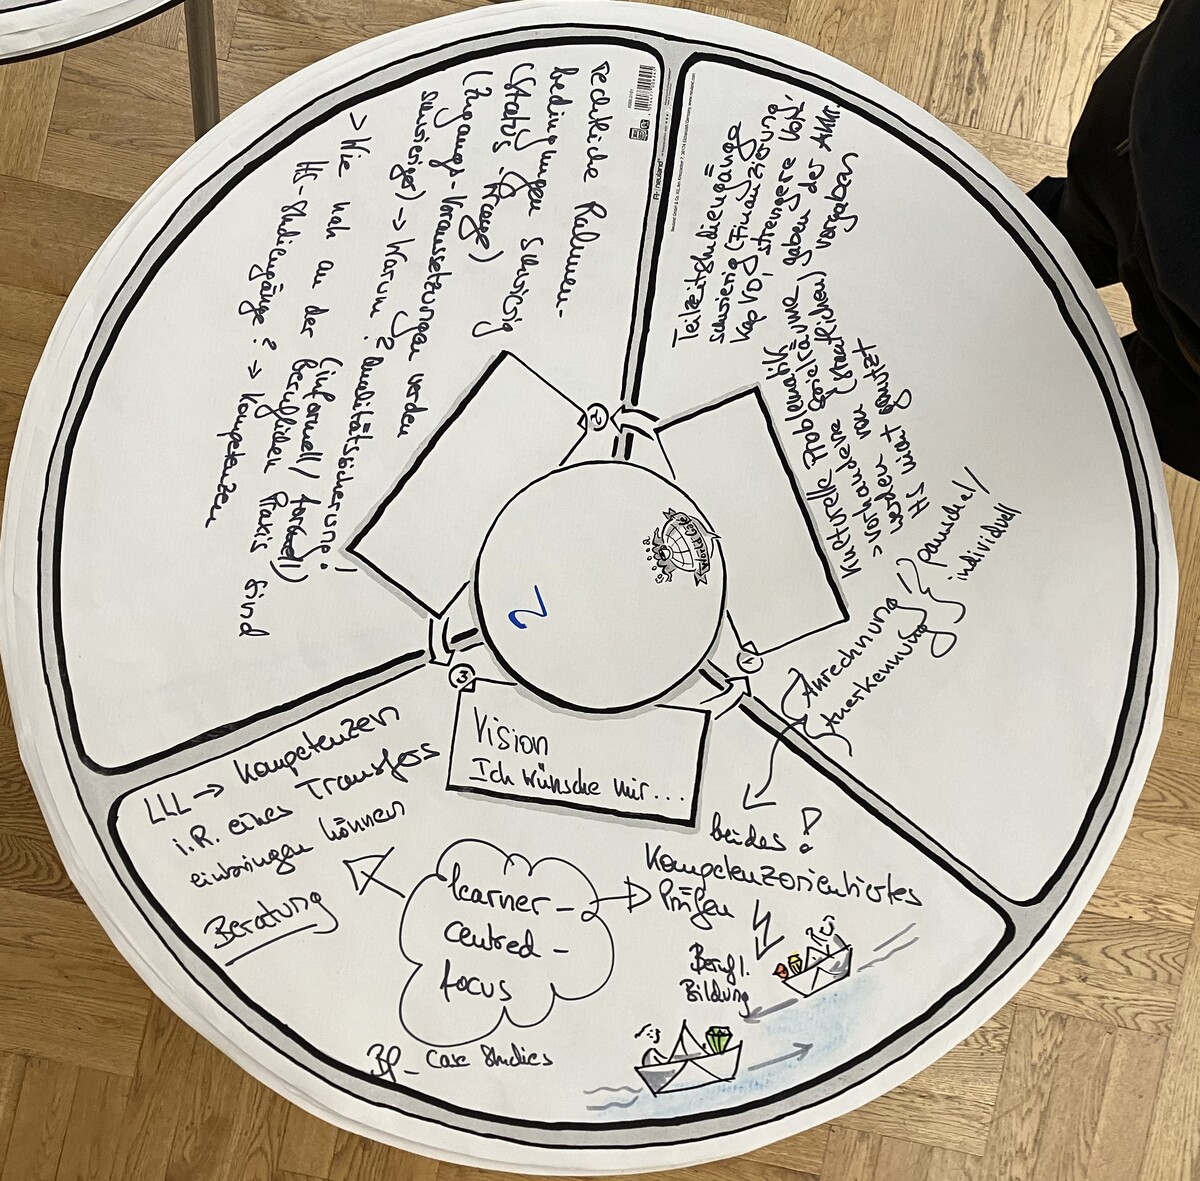 Teilzeitstudiengänge
schwierig (Finanzierung,
KapVO, strengere Vor-
gaben der Akkr.
vorgaben
Kulturelle Problematik
> vorhandene Spielräume
(staatlichen)
werden von
HS nicht genutzt
Anrechnung
Anerkennung
pauschal/
individuell
rechtliche Rahmen-
bedingungen schwierig
(Status-Frage)
(Zugangs-Voraussetzungen werden
schwieriger) → Warum? Qualitätssicherung!
> Wie nah an der (informell/formell)
beruflichen Praxis sind
HS-Studiengänge? → Kompetenzen
World Café
2
1
2
3
neuland
Vision
Ich wünsche mir...
LLL → Kompetenzen
i.R. eines Transfers
einbringen können
Beratung
learner-
centred-
focus
BP_Case Studies
beides!
Kompetenzorientiertes
Prüfen
Berufl.
Bildung